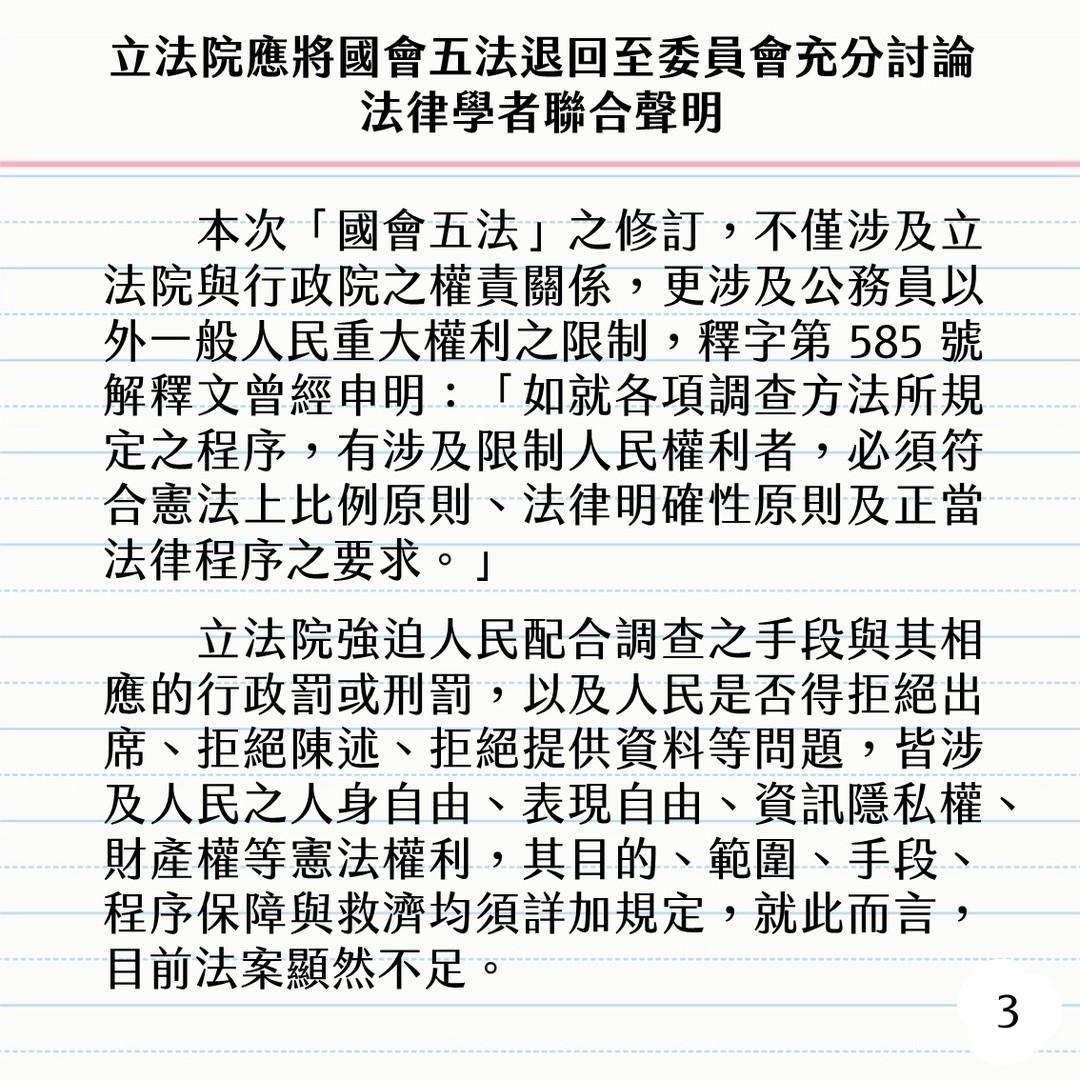 立法院應將國會五法退回至委員會充分討論
法律學者聯合聲明
本次「國會五法」之修訂，不僅涉及立
法院與行政院之權責關係，更涉及公務員以
外一般人民重大權利之限制，釋字第 585 號
解釋文曾經申明：「如就各項調查方法所規
定之程序，有涉及限制人民權利者，必須符
合憲法上比例原則、法律明確性原則及正當
法律程序之要求。」
立法院強迫人民配合調查之手段與其相
應的行政罰或刑罰，以及人民是否得拒絕出
席、拒絕陳述、拒絕提供資料等問題，皆涉
及人民之人身自由、表現自由、資訊隱私權、
財產權等憲法權利，其目的、範圍、手段、
程序保障與救濟均須詳加規定，就此而言，
目前法案顯然不足。
3